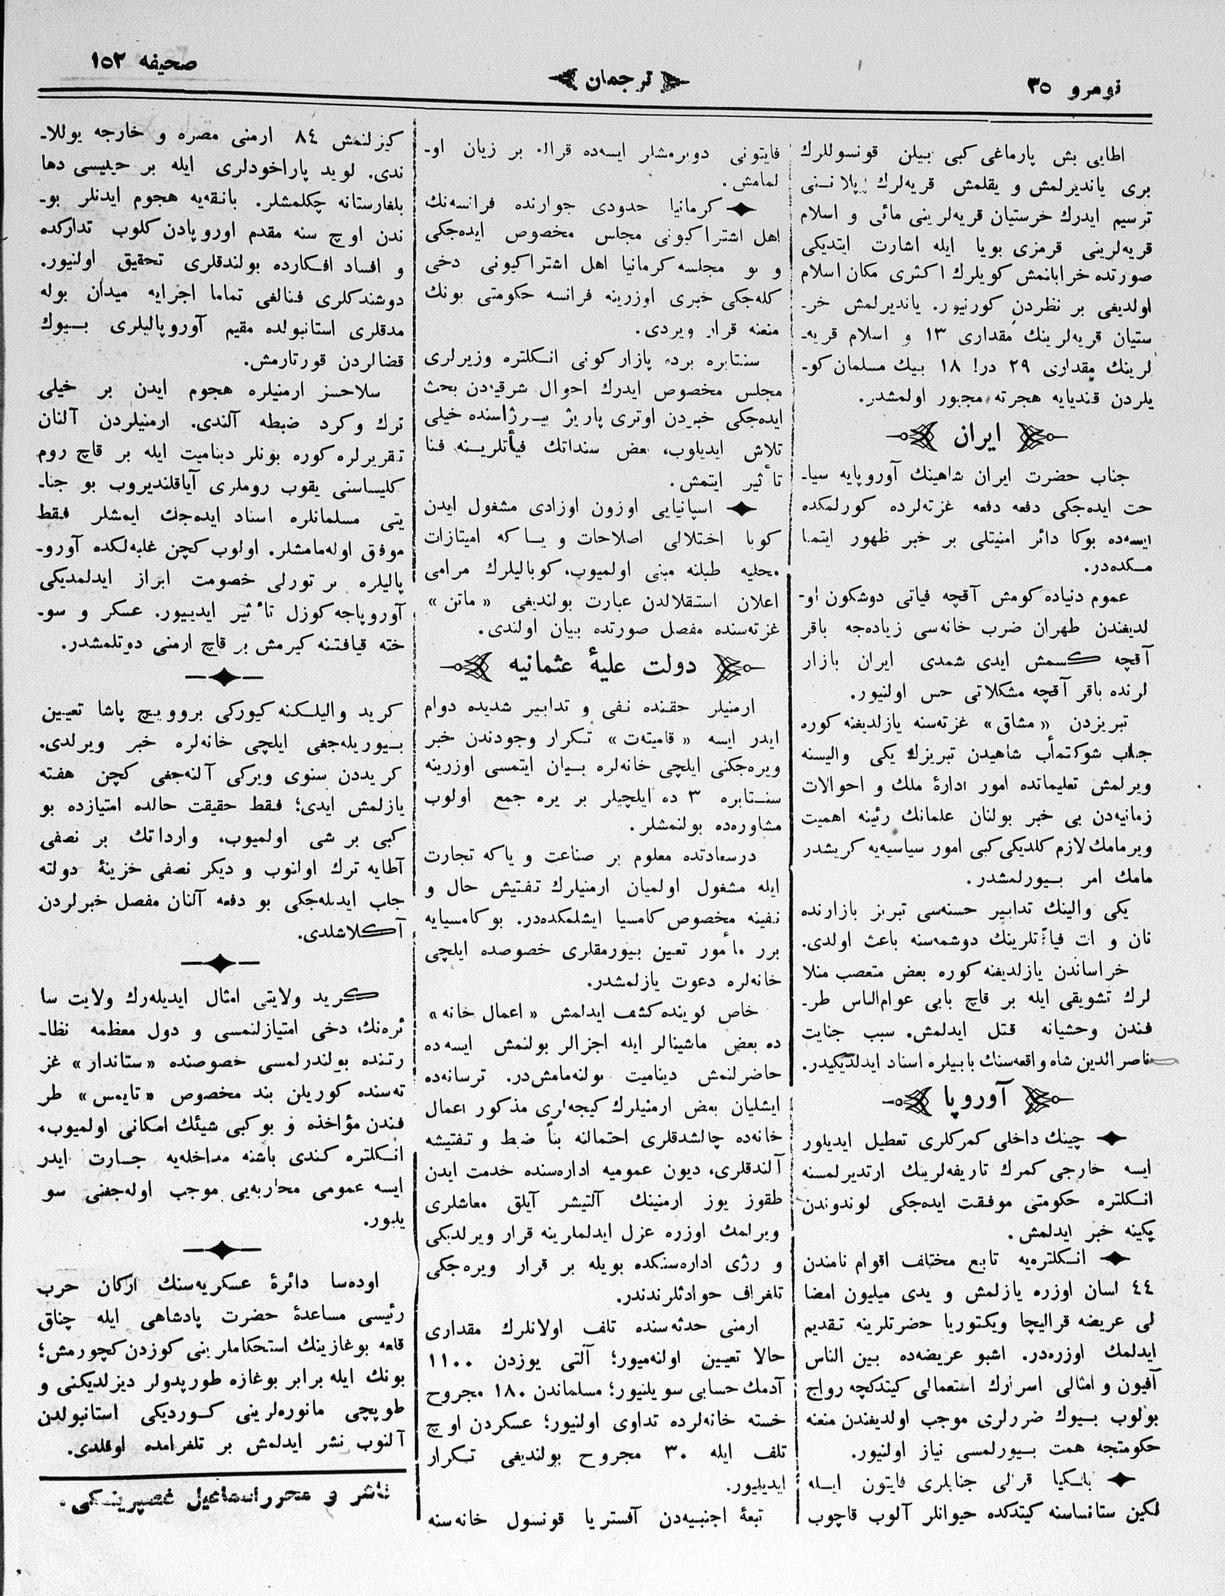 نومرو ٣٥
ترجمان
صحیفه ١٥٢
اطایی بش پارماغی کبی بیلن قونسوللرك
بری یاندیرلمش و یقلمش قریه‌لرك پلاننی
ترسیم ایدرك خرستیان قریه‌لرینی مائی و اسلام
قریه‌لرینی قرمزی بویا ایله اشارت ایتدیکی
صورتده خرابانمش کویلرك اکثری مکان اسلام
اولدیغی بر نظردن کورنیور. یاندیرلمش خر-
ستیان قریه‌لرینك مقداری ١٣ و اسلام قریه-
لرینك مقداری ٢٩ در! ١٨ بیك مسلمان کو-
یلردن قندیایه هجرته مجبور اولمشدر.
ایران
جناب حضرت ایران شاهینك آوروپایه سیا-
حت ایده‌جکی دفعه دفعه غزته‌لرده کورلمکده
ایسه‌ده بوکا دائر امنیتلی بر خبر ظهور ایتما
مکده‌در.
عموم دنیاده کومش آقچه فیاتی دوشکون او-
لدیغندن طهران ضرب خانه‌سی زیاده‌جه باقر
آقچه کسمش ایدی شمدی ایران بازار
لرنده باقر آقچه مشکلاتی حس اولنیور.
تبریزدن «مشاق» غزته‌سنه یازلدیغنه کوره
جناب شوکتمأب شاهیدن تبریزك یکی والیسنه
ویرلمش تعلیماتده امور ادارۀ ملك و احوالات
زمانیه‌دن بی خبر بولنان علمانك رئینه اهمیت
ویرمامك لازم کلدیکی کبی امور سیاسیه‌یه کریشدر
مامك امر بیورلمشدر.
یکی والینك تدابیر حسنه‌سی تبریز بازارنده
نان و ات فیأتلرینك دوشمه‌سنه باعث اولدی.
خراساندن یازلدیغنه کوره بعض متعصب منلا
لرك تشویقی ایله بر قاچ بابی عوام‌الناس طر-
فندن وحشیانه قتل ایدلمش. سبب جنایت
ناصر الدین شاه واقعه‌سنك بابیلره اسناد ایدلدیکیدر.
آوروپا
چینك داخلی کمرکلری تعطیل ایدیلور
ایسه خارجی کمرك تاریفه‌لرینك ارتدیرلمسنه
انکلتره حکومتی موفقت ایده‌جکی لوندوندن
پکینه خبر ایدلمش.
انکلتره‌یه تابع مختلف اقوام نامندن
٤٤ لسان اوزره یازلمش و یدی میلیون امضا
لی عریضه قرالیچا ویکتوریا حضرتلرینه تقدیم
ایدلمك اوزره‌در. اشبو عریضه‌ده بین الناس
آفیون و امثالی اسرارك استعمالی کیتدکچه رواج
بولوب بیوك ضررلری موجب اولدیغندن منعنه
حکومتجه همت بیورلمسی نیاز اولنیور.
قرالی جنابلری فایتون ایله
لکین ستانساسنه کیتدکده حیوانلر آلوب قاچوب
فایتونی دویرمشلر ایسه‌ده قراله بر زیان او-
لمامش.
کرمانیا حدودی جوارنده فرانسه‌نك
اهل اشتراکیونی مجلس مخصوص ایده‌جکی
و بو مجلسه کرمانیا اهل اشتراکیونی دخی
کله‌جکی خبری اوزرینه فرانسه حکومتی بونك
منعنه قرار ویردی.
سنتابره برده پازار کونی انکلتره وزیرلری
مجلس مخصوص ایدرك احوال شرقیه‌دن بحث
ایده‌جکی خبردن اوتری پاریژ بیرژاسنده خیلی
تلاش ایدیلوب، بعض سنداتك فیأتلرینه فنا
تأثیر ایتمش.
اسپانیایی اوزون اوزادی مشغول ایدن
کوبا اختلالی اصلاحات و یاکه امیتازات
محلیه طبلنه مبنی اولمیوب، کوبالیلرك مرامی
اعلان استقلالدن عبارت بولندیغی «ماتن»
غزته‌سنده مفصل صورتده بیان اولندی.
دولت علیۀ عثمانیه
ارمنیلر حقنده نفی و تدابیر شدیده دوام
ایدر ایسه «قامیته‌ت» تکرار وجودندن خبر
ویره‌جکنی ایلچی خانه‌لره بیان ایتمسی اوزرینه
سنتابره ٣ ده ایلچیلر بر یره جمع اولوب
مشاوره‌ده بولنمشلر.
درسعادتده معلوم بر صناعت و یاکه تجارت
ایله مشغول اولمیان ارمنیلرك تفتیش حال و
نفینه مخصوص کامسیا ایشلمکده‌در. بوکامسیایه
برر مأمور تعین بیورمقلری خصوصده ایلچی
خانه‌لره دعوت یازلمشدر.
خاص لوینده کشف ایدلمش «اعمال خانه»
ده بعض ماشینالر ایله اجزالر بولنمش ایسه‌ده
حاضرلنمش دینامیت بولنه‌مامش‌در. ترسانه‌ده
ایشلیان بعض ارمنیلرك کیجه‌لری مذکور اعمال
خانه‌ده چالشدقلری احتمالنه بناً ضبط و تفتیشه
آلندقلری، دیون عمومیه اداره‌سنده خدمت ایدن
طقوز یوز ارمنینك آلتیشر آیلق معاشلری
ویرلمك اوزره عزل ایدلملرینه قرار ویرلدیکی
و رژی اداره‌سنکده بویله بر قرار ویره‌جکی
تلغراف حوادثلرندندر.
ارمنی حدثه‌سنده تلف اولانلرك مقداری
حالا تعیین اولنه‌میور؛ آلتی یوزدن ١١٠٠
آدمك حسابی سویلنیور؛ مسلماندن ١٨٠ مجروح
خسته خانه‌لرده تداوی اولنیور؛ عسکردن اوچ
تلف ایله ٣٠ مجروح بولندیغی تکرار
ایدیلیور.
تبعۀ اجنبیه‌دن آفستریا قونسول خانه‌سنه
کیزلنمش ٨٤ ارمنی مصره و خارجه یوللا-
ندی. لوید پاراخودلری ایله بر خیلیسی دها
بلغارستانه چکلمشلر. بانقه‌یه هجوم ایدنلر بو-
ندن اوچ سنه مقدم اوروپادن کلوب تدارکده
و افساد افکارده بولندقلری تحقیق اولنیور.
دوشندکلری فنالغی تماما اجرایه میدان بوله
مدقلری استانبولده مقیم آوروپالیلری بیوك
قضالردن قورتارمش.
سلاحسز ارمنیلره هجوم ایدن بر خیلی
ترك و کرد ضبطه آلندی. ارمنیلردن آلنان
تقریرلره کوره بونلر دینامیت ایله بر قاچ روم
کلیساسنی یقوب روملری آیاقلندیروب بو جنا-
یتی مسلمانلره اسناد ایده‌جك ایمشلر فقط
موفق اوله‌مامشلر. اولوب کچن غلبه‌لکده آورو-
پالیلره بر تورلی خصومت ابراز ایدلمدیکی
آوروپاجه کوزل تأثیر ایدیور. عسکر و سو-
خته قیافتنه کیرمش بر قاچ ارمنی ده‌وتلمشدر.
کرید والیلکنه کیورکی بروویچ پاشا تعیین
بیوریله‌جغی ایلچی خانه‌لره خبر ویرلدی.
کریددن سنوی ویرکی آلنه‌جغی کچن هفته
یازلمش ایدی؛ فقط حقیقت حالده امتیازده بو
کبی بر شی اولمیوب، وارداتك بر نصفی
آطایه ترك اولنوب و دیکر نصفی خزینۀ دولته
جلب ایدیله‌جکی بو دفعه آلنان مفصل خبرلردن
آکلاشلدی.
کرید ولایتی امثال ایدیله‌رك ولایت سا
ئره‌نك، دخی امتیازلنمسی و دول معظمه نظا-
رتنده بولندرلمسی خصوصنده «ستاندار» غز
ته‌سنده کوریلن بند مخصوص «تایمس» طر
فندن مؤاخذه و بوکبی شیئك امکانی اولمیوب،
انکلتره کندی باشنه مداخله‌یه جسارت ایدر
ایسه عمومی محاربه‌یی موجب اوله‌جغنی سو
یلیور.
اوده‌سا دائرۀ عسکریه‌سنك ارکان حرب
رئیسی مساعدۀ حضرت پادشاهی ایله چناق
قلعه بوغازینك استحکاملرینی کوزدن کچورمش؛
بونك ایله برابر بوغازه طورپدولر دیزلدیکنی و
طوپچی مانوره‌لرینی کوردیکی استانبولدن
آلنوب نشر ایدلمش بر تلغرامده اوقلدی.
ناشر و محرر اسماعیل غصپرینسکی.